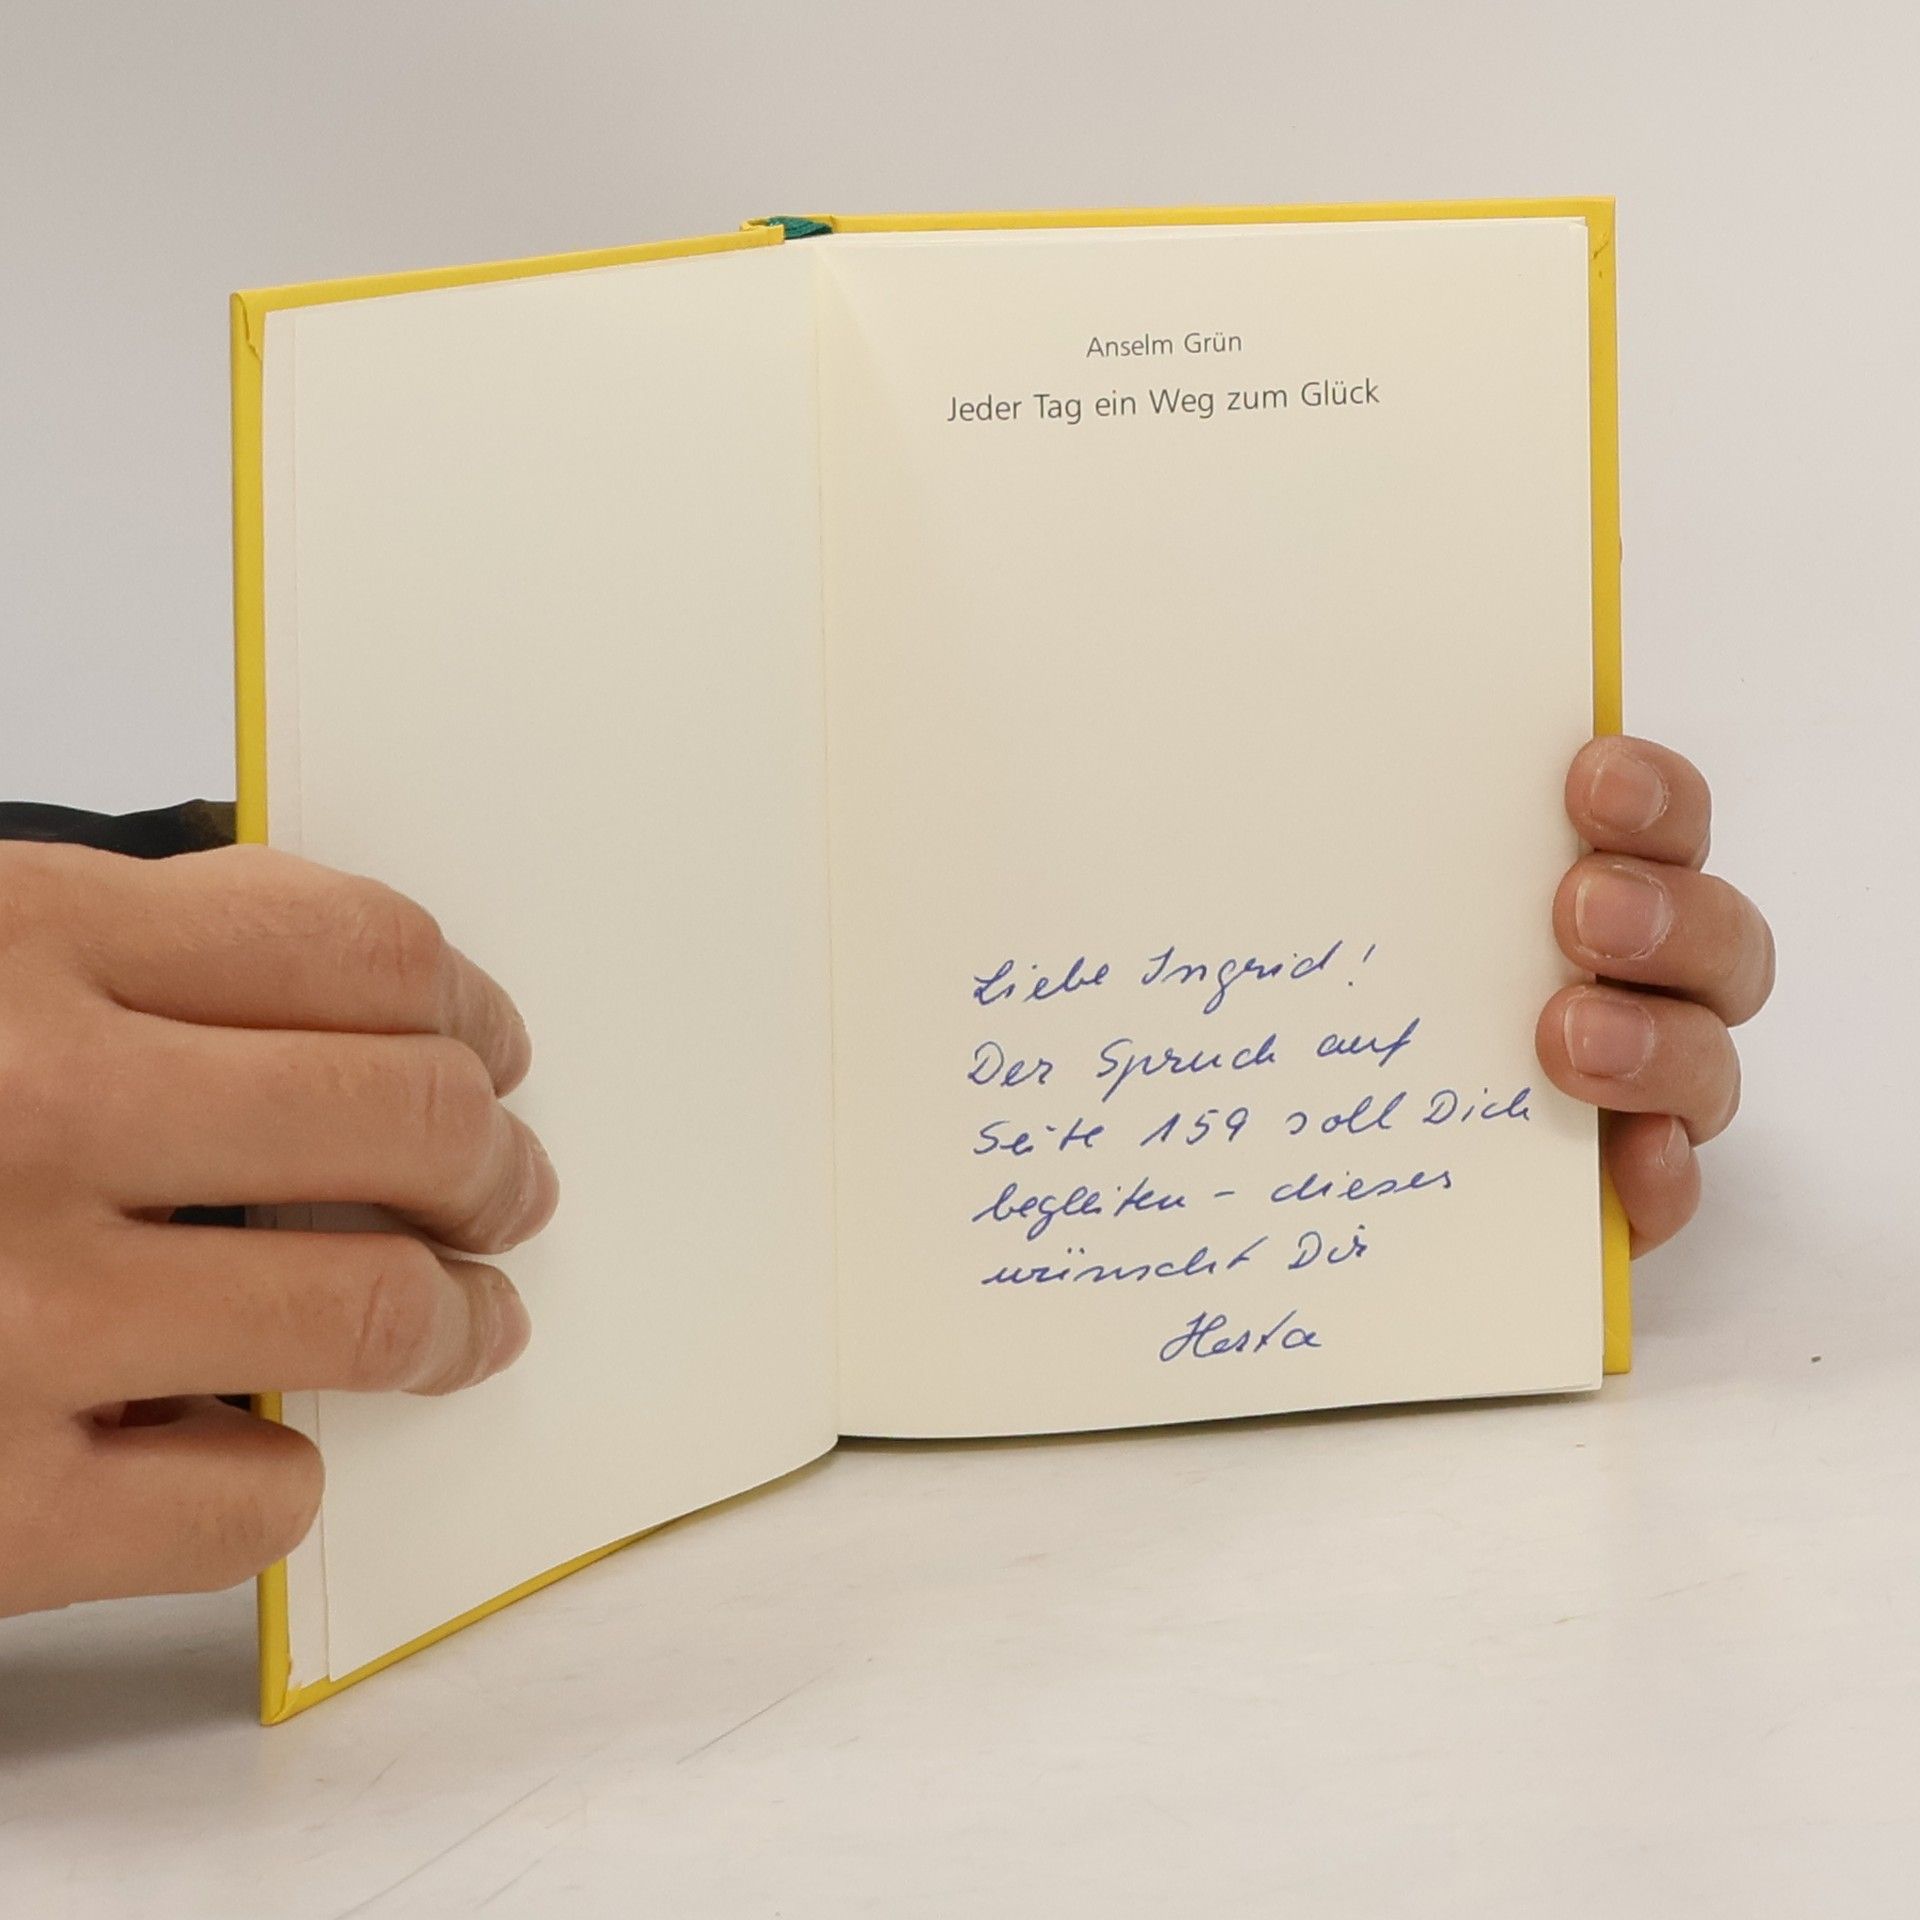 Anselm Grün
Jeder Tag ein Weg zum Glück
Liebe Ingrid!
Der Spruch auf
Seite 159 soll Dich
begleiten - dieses
wünscht Dir
Herta